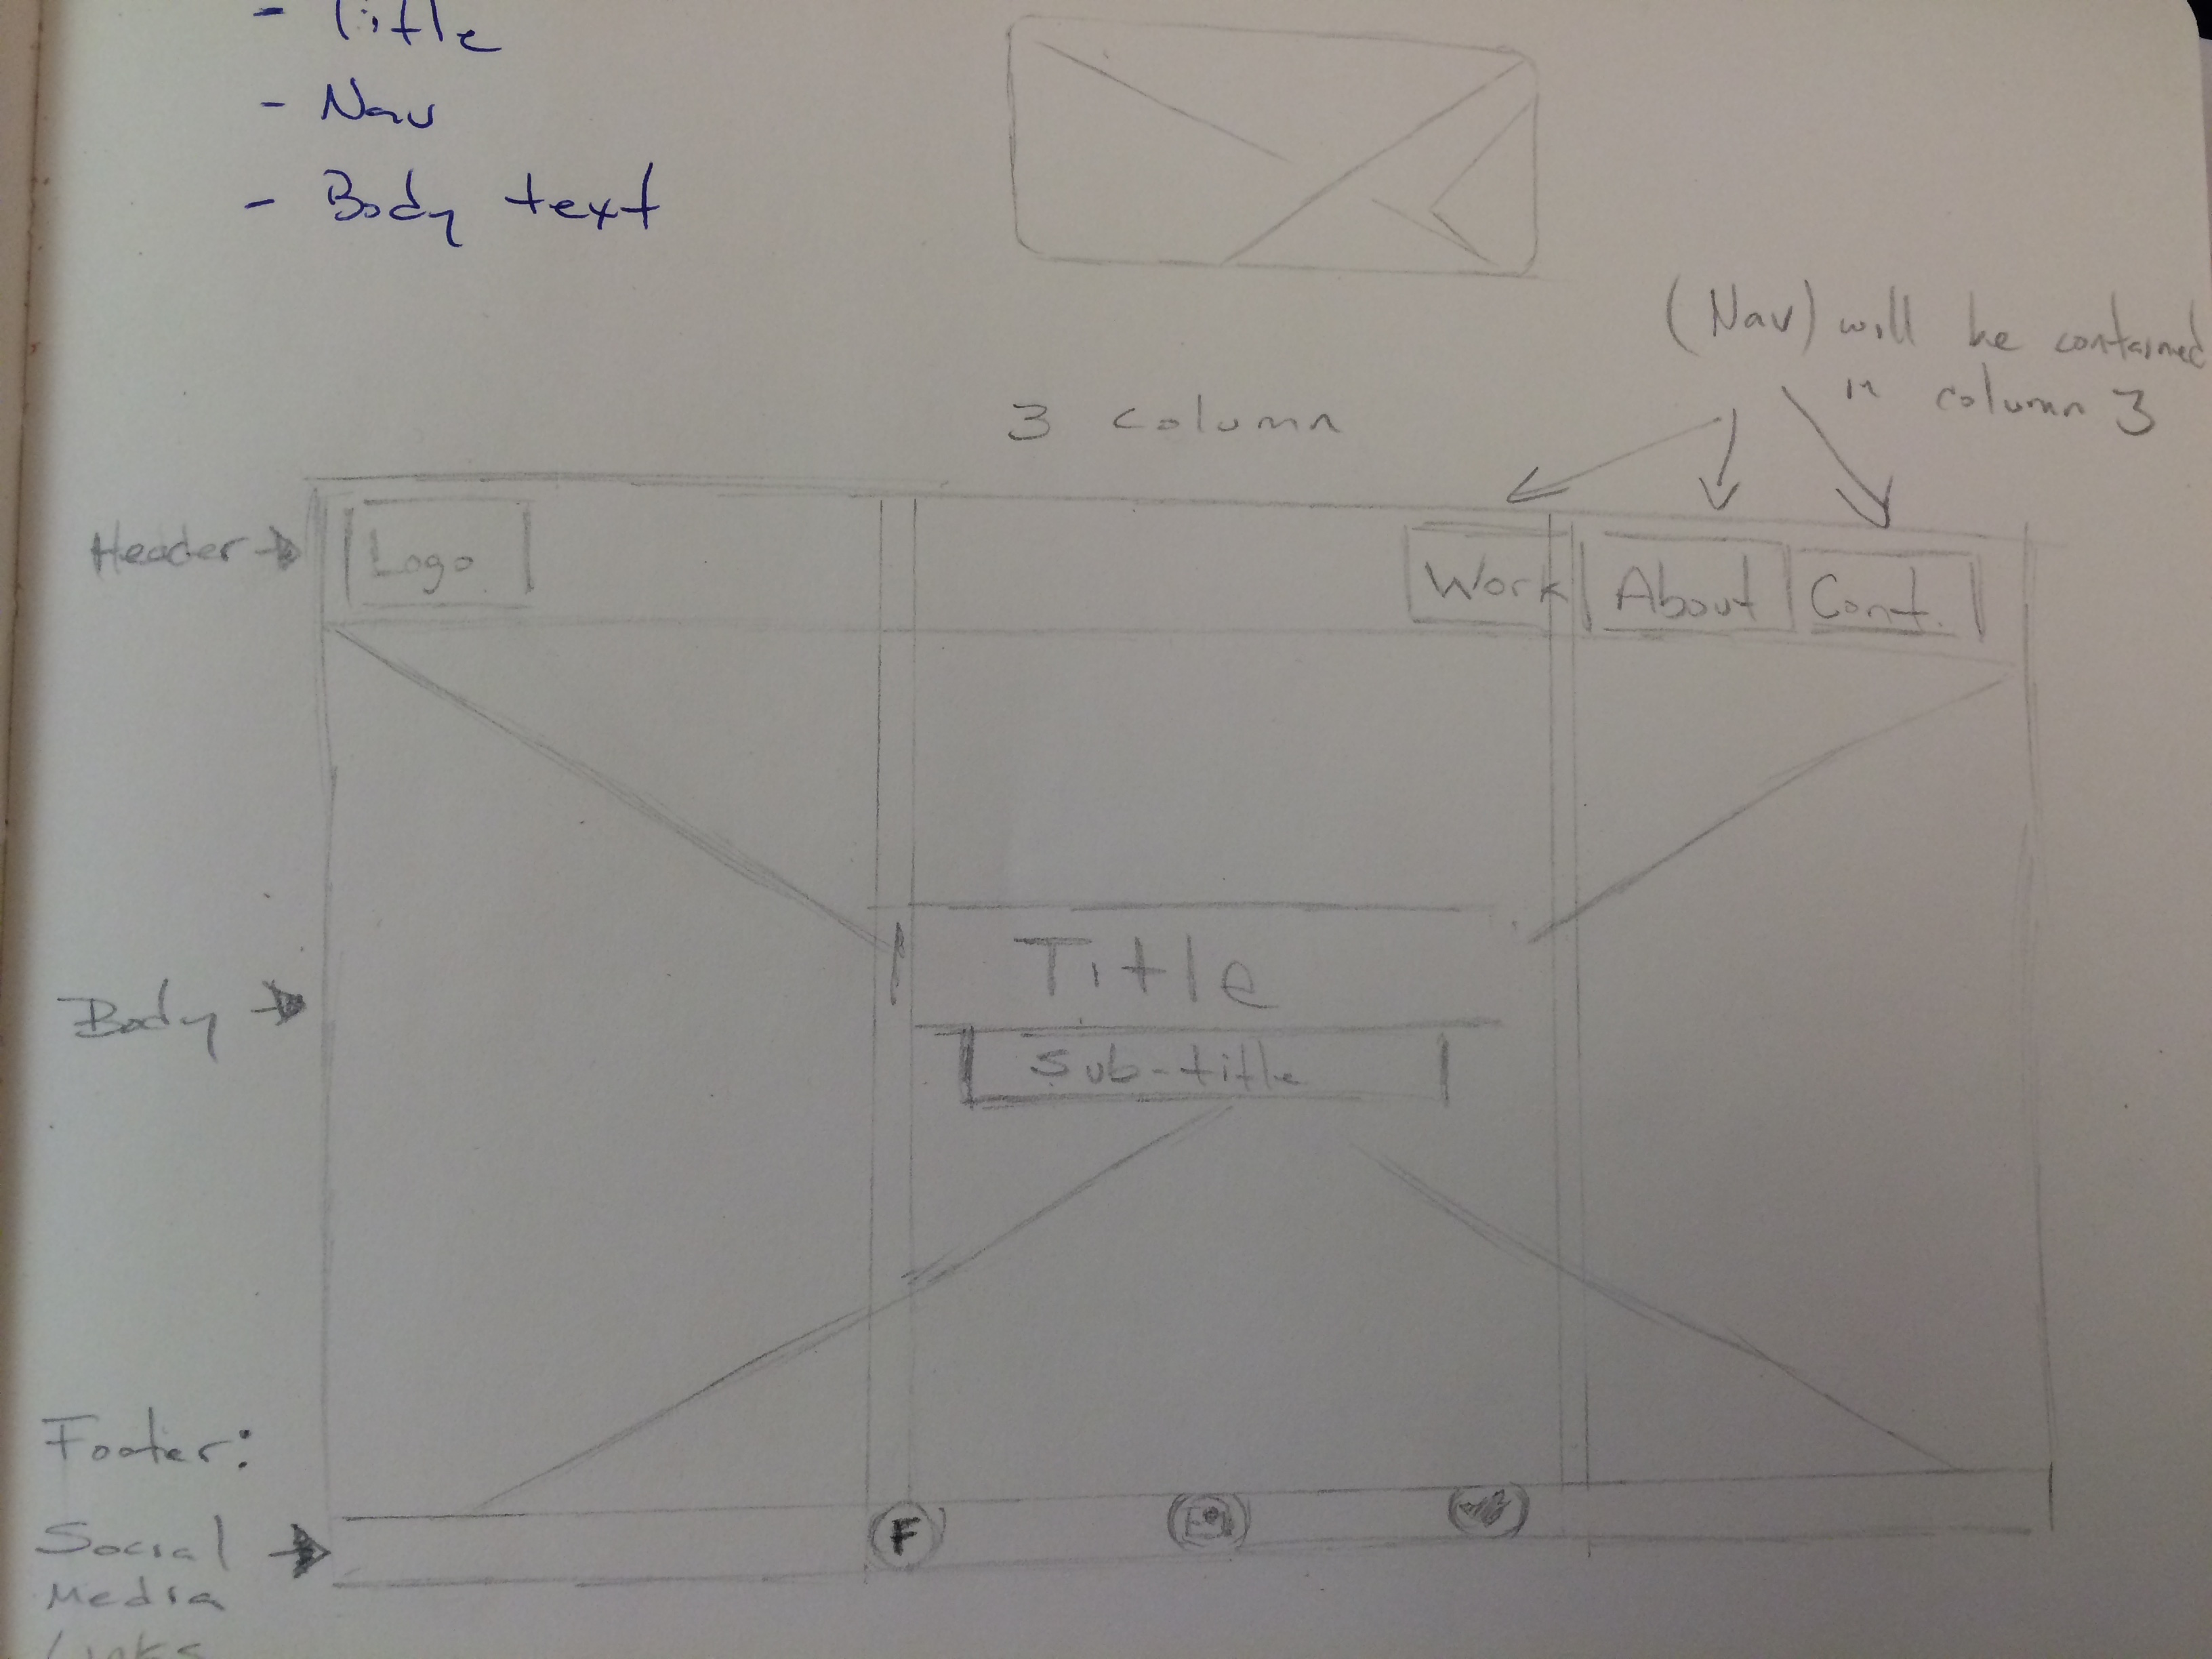 - Title
- Nav
- Body text
(Nav) will be contained
in column 3
3 column
Header
Logo
Work
About
Cont.
Body
Title
Sub-title
Footer:
Social
Media
Links
F